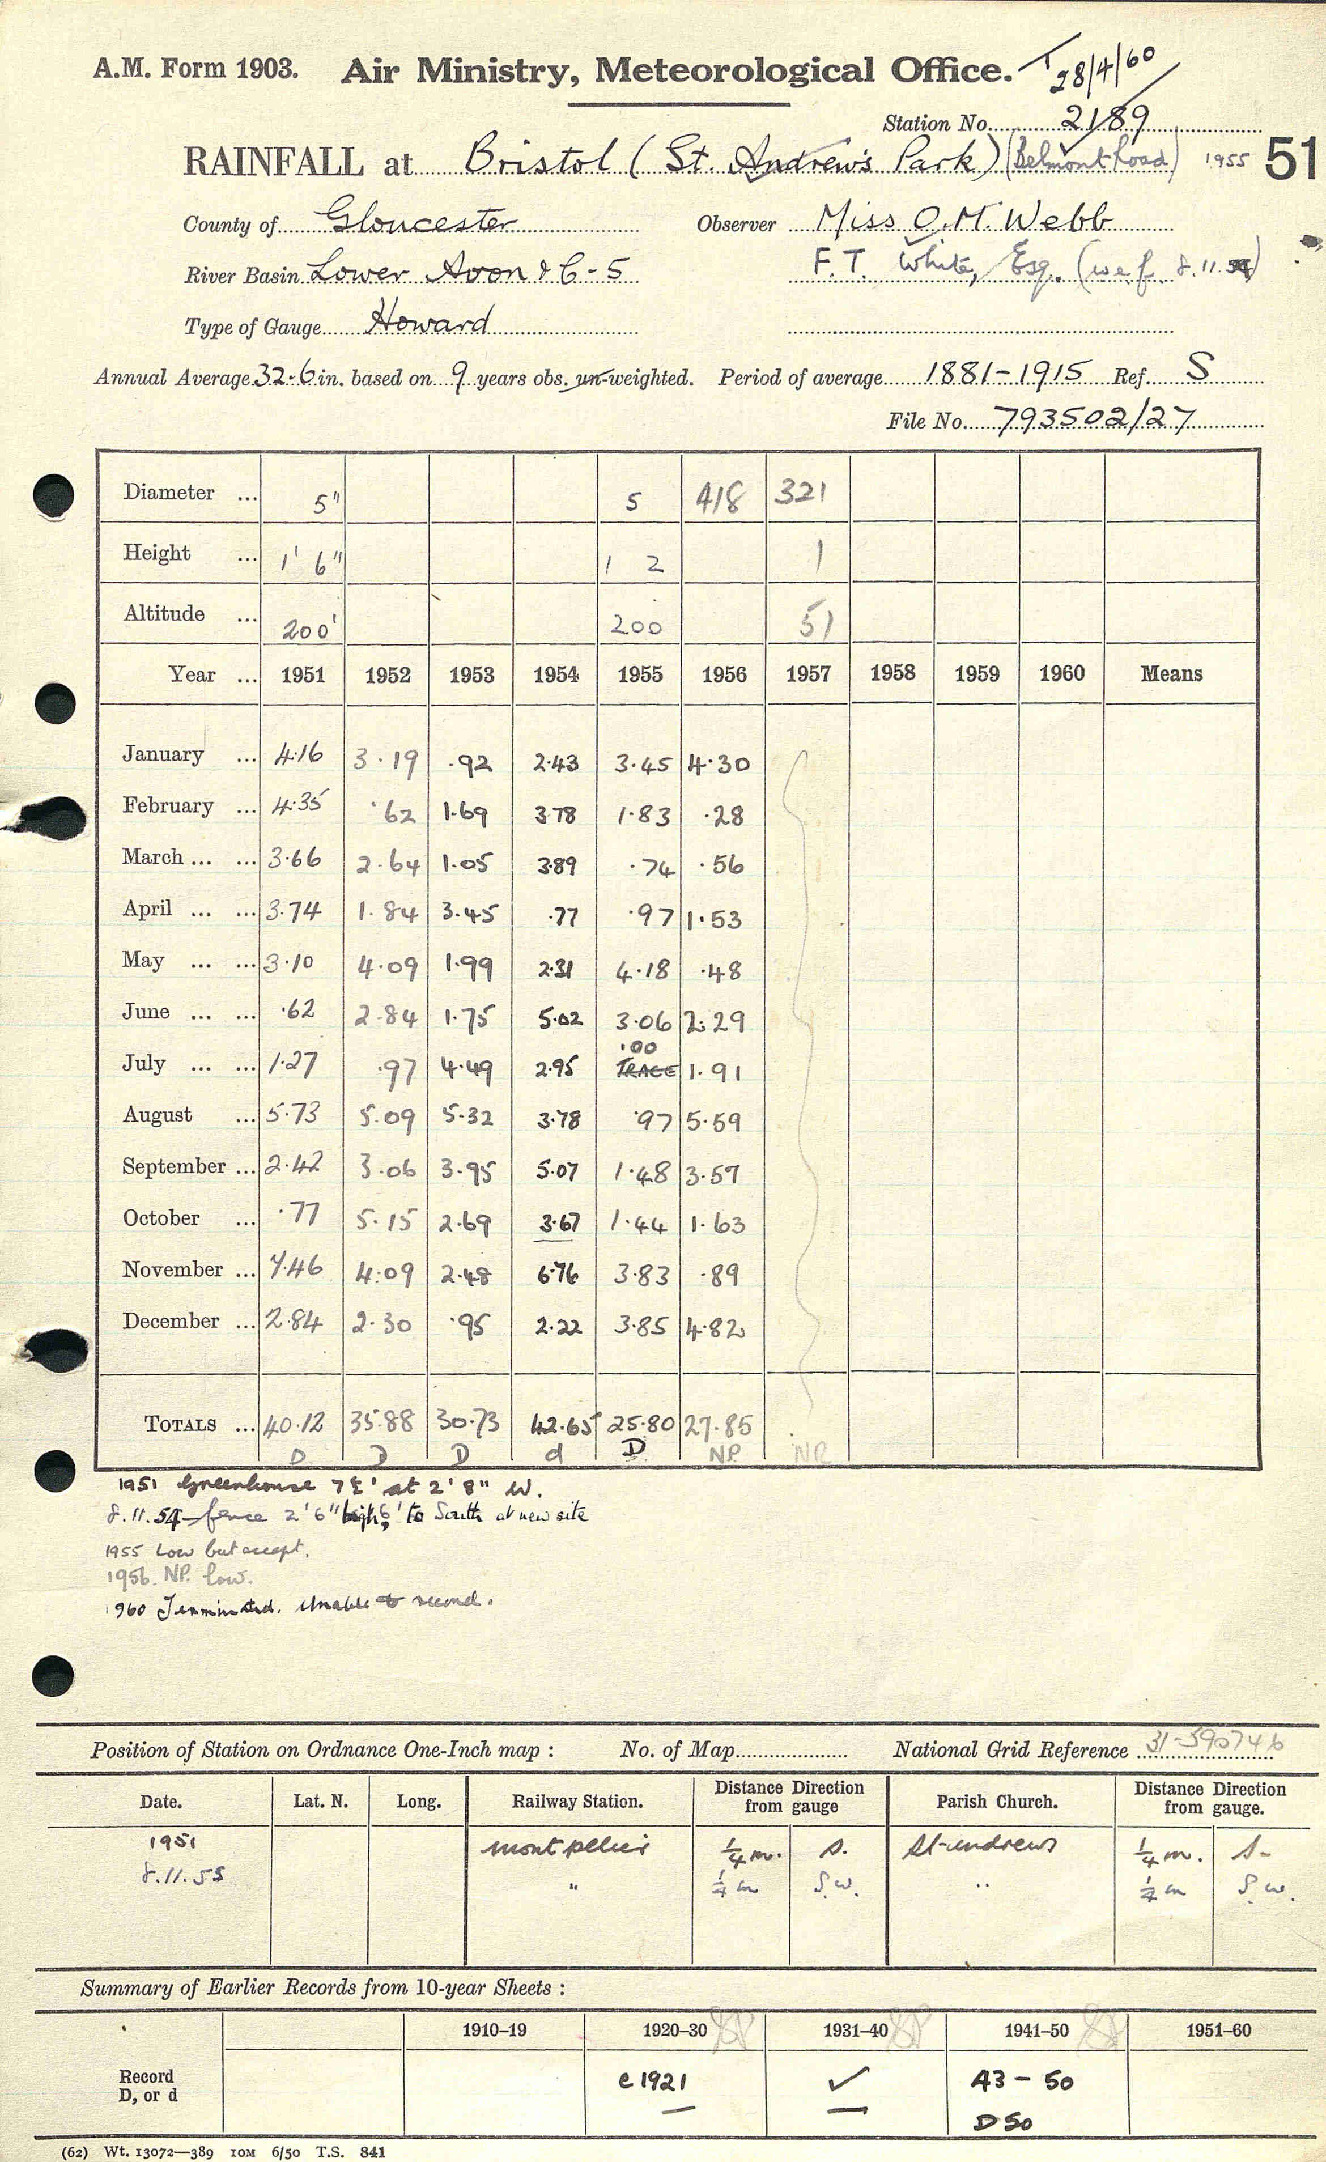 A.M. Form 1903. Air Ministry, Meteorological Office. T 28/4/60
Station No. 2189
RAINFALL at Bristol (St. Andrew's Park) (Belmont Road) 1955 51
County of Gloucester Observer Miss O.M. Webb
River Basin Lower Avon & C-5 F.T. White, Esq. (w.e.f. 8.11.54)
Type of Gauge Howard
Annual Average 32.6 in. based on 9 years obs. un-weighted. Period of average 1881-1915 Ref. S
File No. 793502/27
Diameter ... 5" 5 418 321
Height ... 1' 6" 1 2 1
Altitude ... 200' 200 51
Year ... 1951 1952 1953 1954 1955 1956 1957 1958 1959 1960 Means
January ... 4.16 3.19 .92 2.43 3.45 4.30
February ... 4.35 .62 1.69 3.78 1.83 .28
March ... ... 3.66 2.64 1.05 3.89 .74 .56
April ... ... 3.74 1.84 3.45 .77 .97 1.53
May ... ... 3.10 4.09 1.99 2.31 4.18 .48
June ... ... .62 2.84 1.75 5.02 3.06 2.29
.00
July ... ... 1.27 .97 4.49 2.95 TRACE 1.91
August ... 5.73 5.09 5.32 3.78 .97 5.59
September ... 2.42 3.06 3.95 5.07 1.48 3.57
October ... .77 5.15 2.69 3.67 1.44 1.63
November ... 7.46 4.09 2.48 6.76 3.83 .89
December ... 2.84 2.30 .95 2.22 3.85 4.82
TOTALS ... 40.12 35.88 30.73 42.65 25.80 27.85
D D D d D NP. NR
1951 Greenhouse 7½' at 2' 8" W.
8.11.54 - fence 2' 6" high, 6' to South at new site
1955 Low but accept.
1956. NP. low.
1960 Terminated. Unable to record.
Position of Station on Ordnance One-Inch map : No. of Map National Grid Reference 31-590746
Date. Lat. N. Long. Railway Station. Distance Direction from gauge Parish Church. Distance Direction from gauge.
1951 Montpelier ¼ m. S. St-andrews ¼ m. S-
8.11.55 " ¼ m S.W. " ¼ m S.W.
Summary of Earlier Records from 10-year Sheets :
1910-19 1920-30 1931-40 1941-50 1951-60
Record D, or d c1921 ✓ 43 - 50
D 50
(62) Wt. 13072—389 10M 6/50 T.S. 841